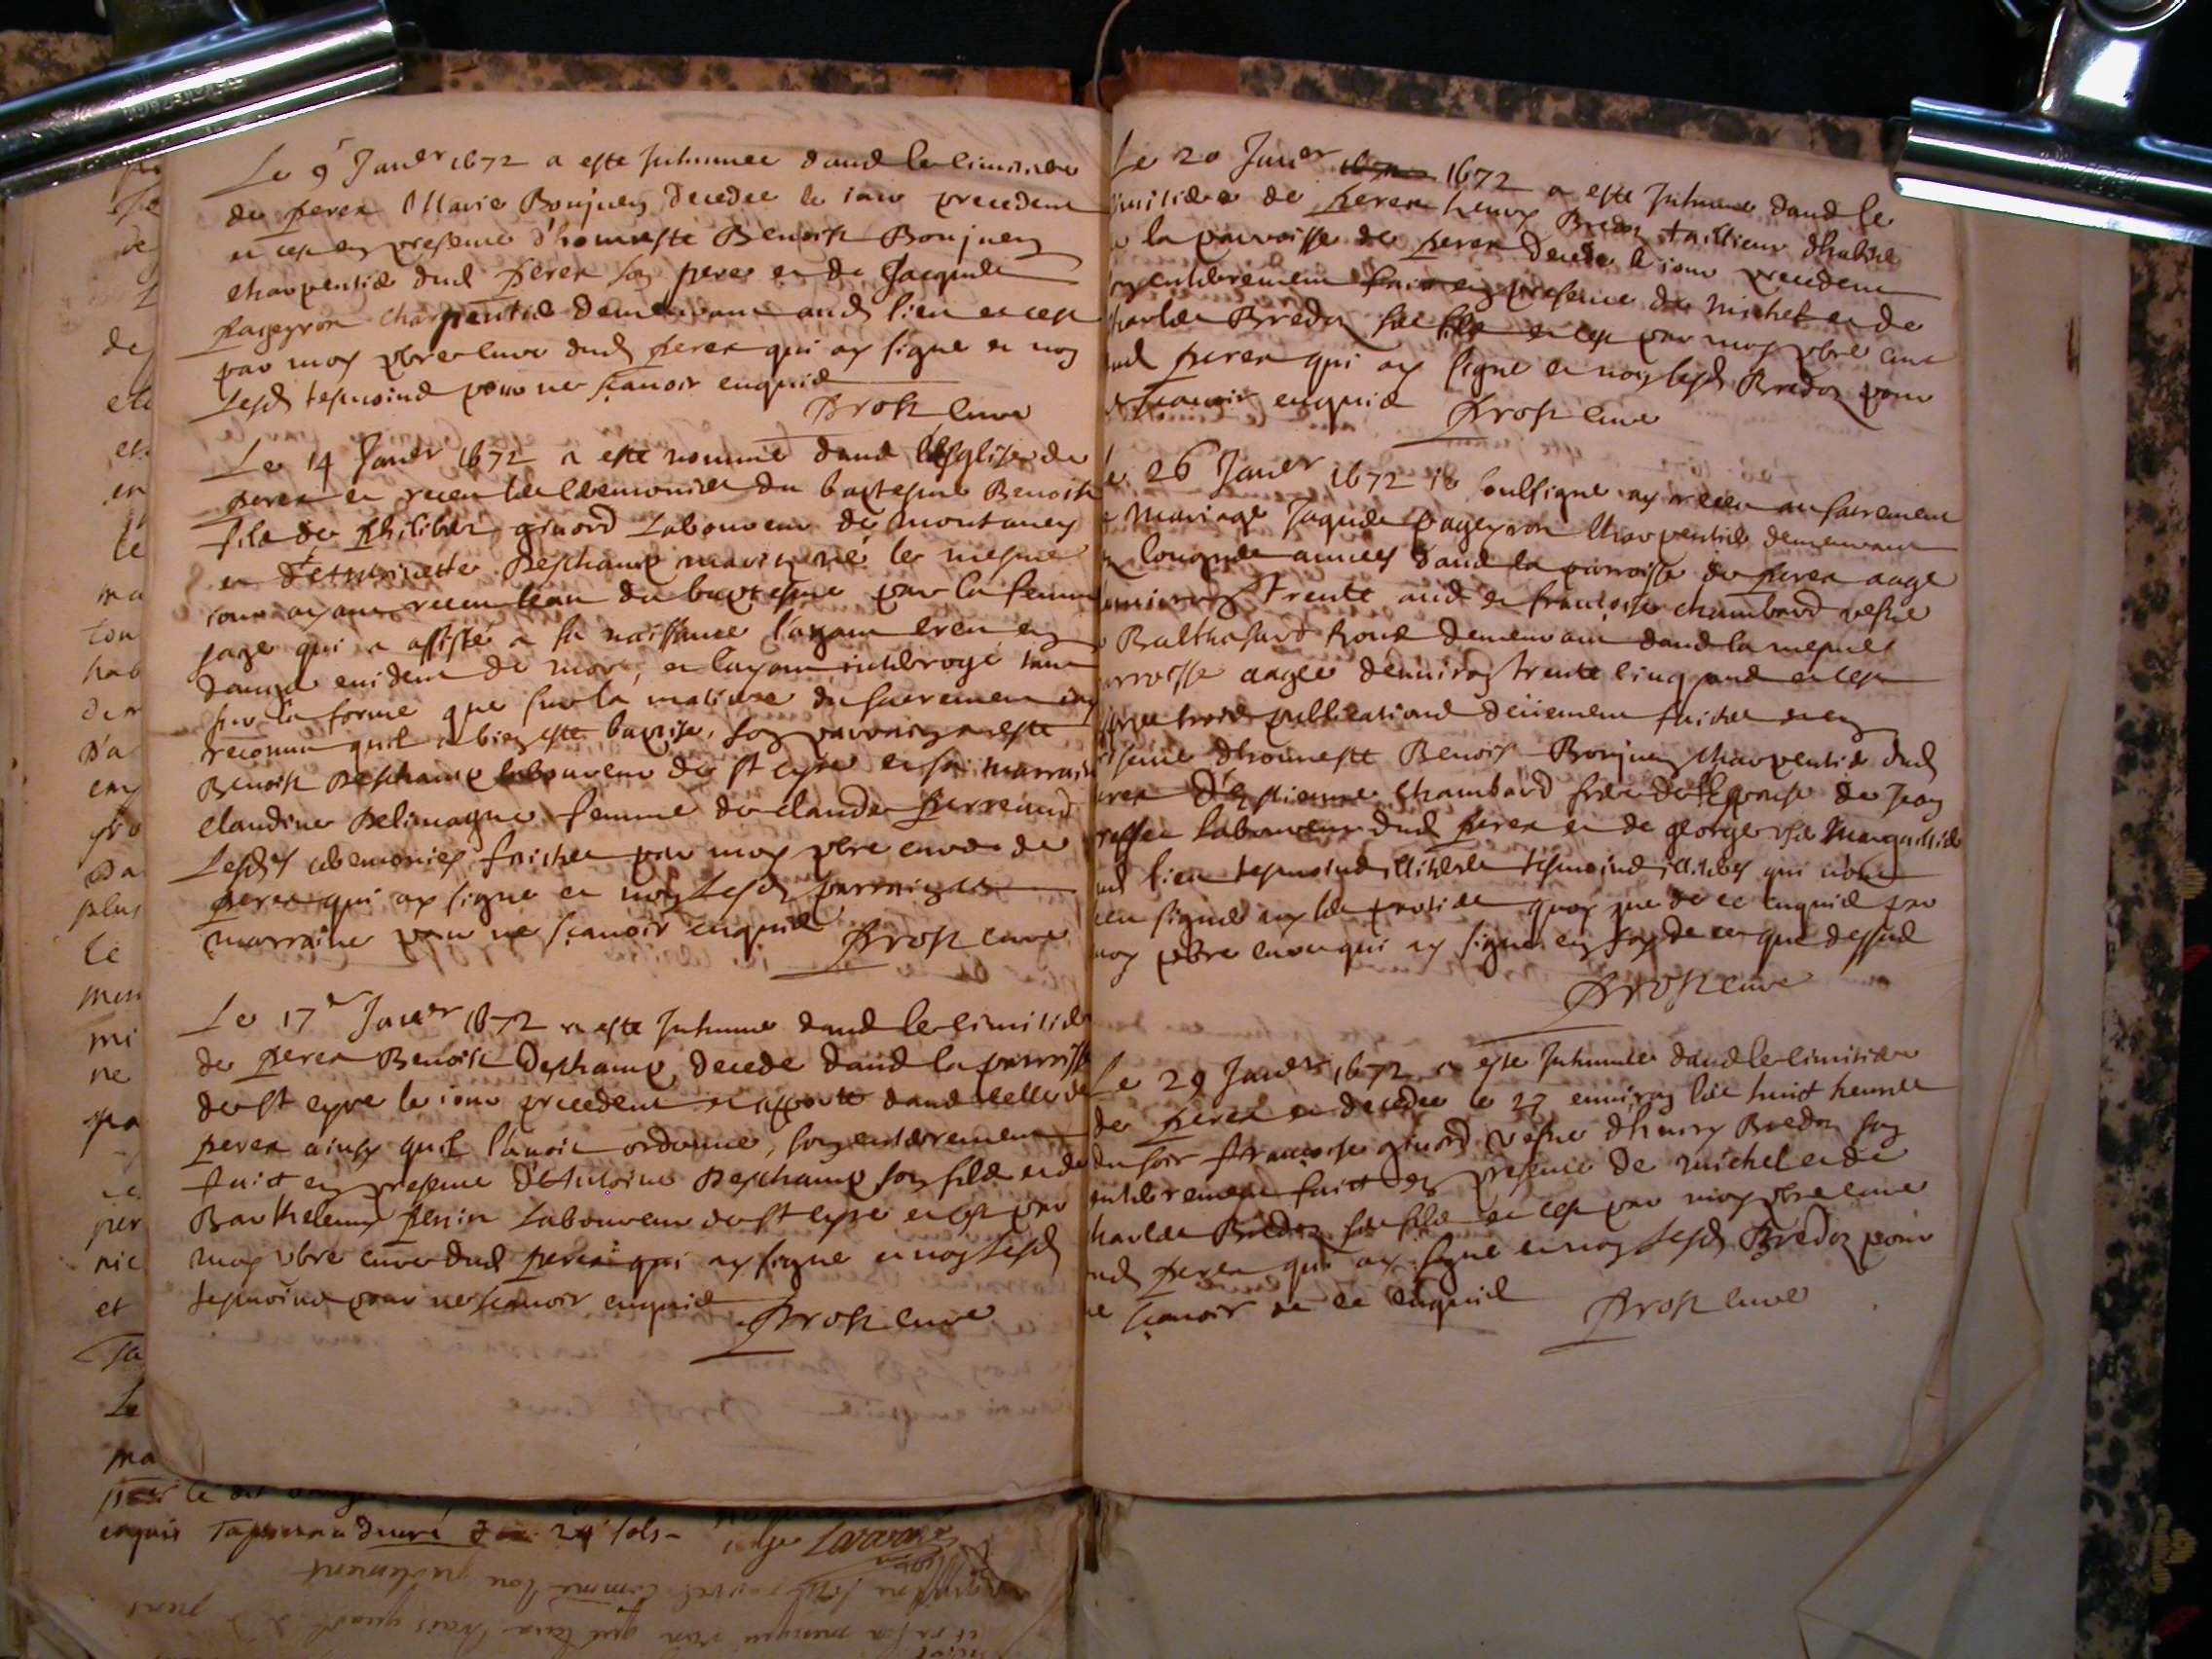 Le 9 Janer 1672 a este Inhumee dans le cimitiere
de perex Marie Bonjuen decedee le iour precedent
et ce en presence d'honneste Benoist Bonjuen
charpentier dud perex son pere et de Jacques
pageyron charpentier demeurant aud lieu et ce
par moy pbre cure dud perex qui ay signe et non
lesd tesmoins pour ne scavoir enquis
Brost cure
Le 14 Janer 1672 a este nomme dans l'esglise de
perex et receu les ceremonies du baptesme Benoist
fils de philibert guiord Laboureur de montaney
et d'Anthoinette Deschamp mariez né le mesme
iour ayant receu l'eau du baptesme par la femme
sage qui a assisté a sa naissance l'ayant creu en
danger evident de mort, et layant interrogé tant
sur la forme que sur la matiere du sacrement iay
reconnu quil a bien este baptise, son parrain a este
Benoist Deschamp laboureur de st eyre et sa marraine
claudine Delimagne femme de claude perreaud
Lesdes ceremonies faictes par moy pbre cure de
perex qui ay signe et non Lesd parrain et
marraine pour ne scavoir enquis Brost cure
Le 17e Janer 1672 a este Inhume dans le cimitiere
de perex Benoist Deschamp decede dans la parroisse
de st eyre le iour precedent et apporte dans celle de
perex ainsy quil l'avoit ordonne, son enterrement
faict en presence d'Anthoine Deschamp son fils et de
Barthelemy perrin Laboureur de st eyre et ce par
moy pbre cure dud perex qui ay signe et non Lesd
tesmoins pour ne scavoir enquis
Brost cure
Le 20 Janer 1672 a este Inhume dans le
cimitiere de perex henry Bredon taillieur d'habits
de la parroisse de perex decede le iour precedent
son enterrement faict en presence de michel et de
charles Bredon ses fils et ce par moy pbre cure
dud perex qui ay signe et non lesd Bredon pour
ne scavoir enquis Brost cure
Le 26 Janer 1672 ie soussigne ay receu au sacrement
de Mariage Jaques pageyron Charpentier demeurant
longues annees dans la parroisse de perex aage
denviron trente ans et francoise chambard vefve
Balthasard demeurant dans la mesme
parroisse aagee denviron trente cinq ans et ce
apres trois publications deüement faictes et en
presence dhonneste Benoist Bonjuen charpentier dud
perex D'estienne Chambard frere de l'espouse de Jean
Laboureur dud perex et de george Marguillier
dud lieu tesmoins tesmoins qui n'ont
sceu signer ny les parties quoy que de ce enquis par
moy pbre cure qui ay signe en foy de ce que dessus
Brost cure
Le 29 Janer 1672 a este Inhumee dans le cimitiere
de perex et decedee le 27 environ les huict heures
du soir francoise guiord vefve dhenry Bredon son
enterrement faict en presence de michel et de
charles Bredon ses fils et ce par moy pbre cure
dud perex qui ay signe et non lesd Bredon pour
ne scavoir de ce enquis Brost cure